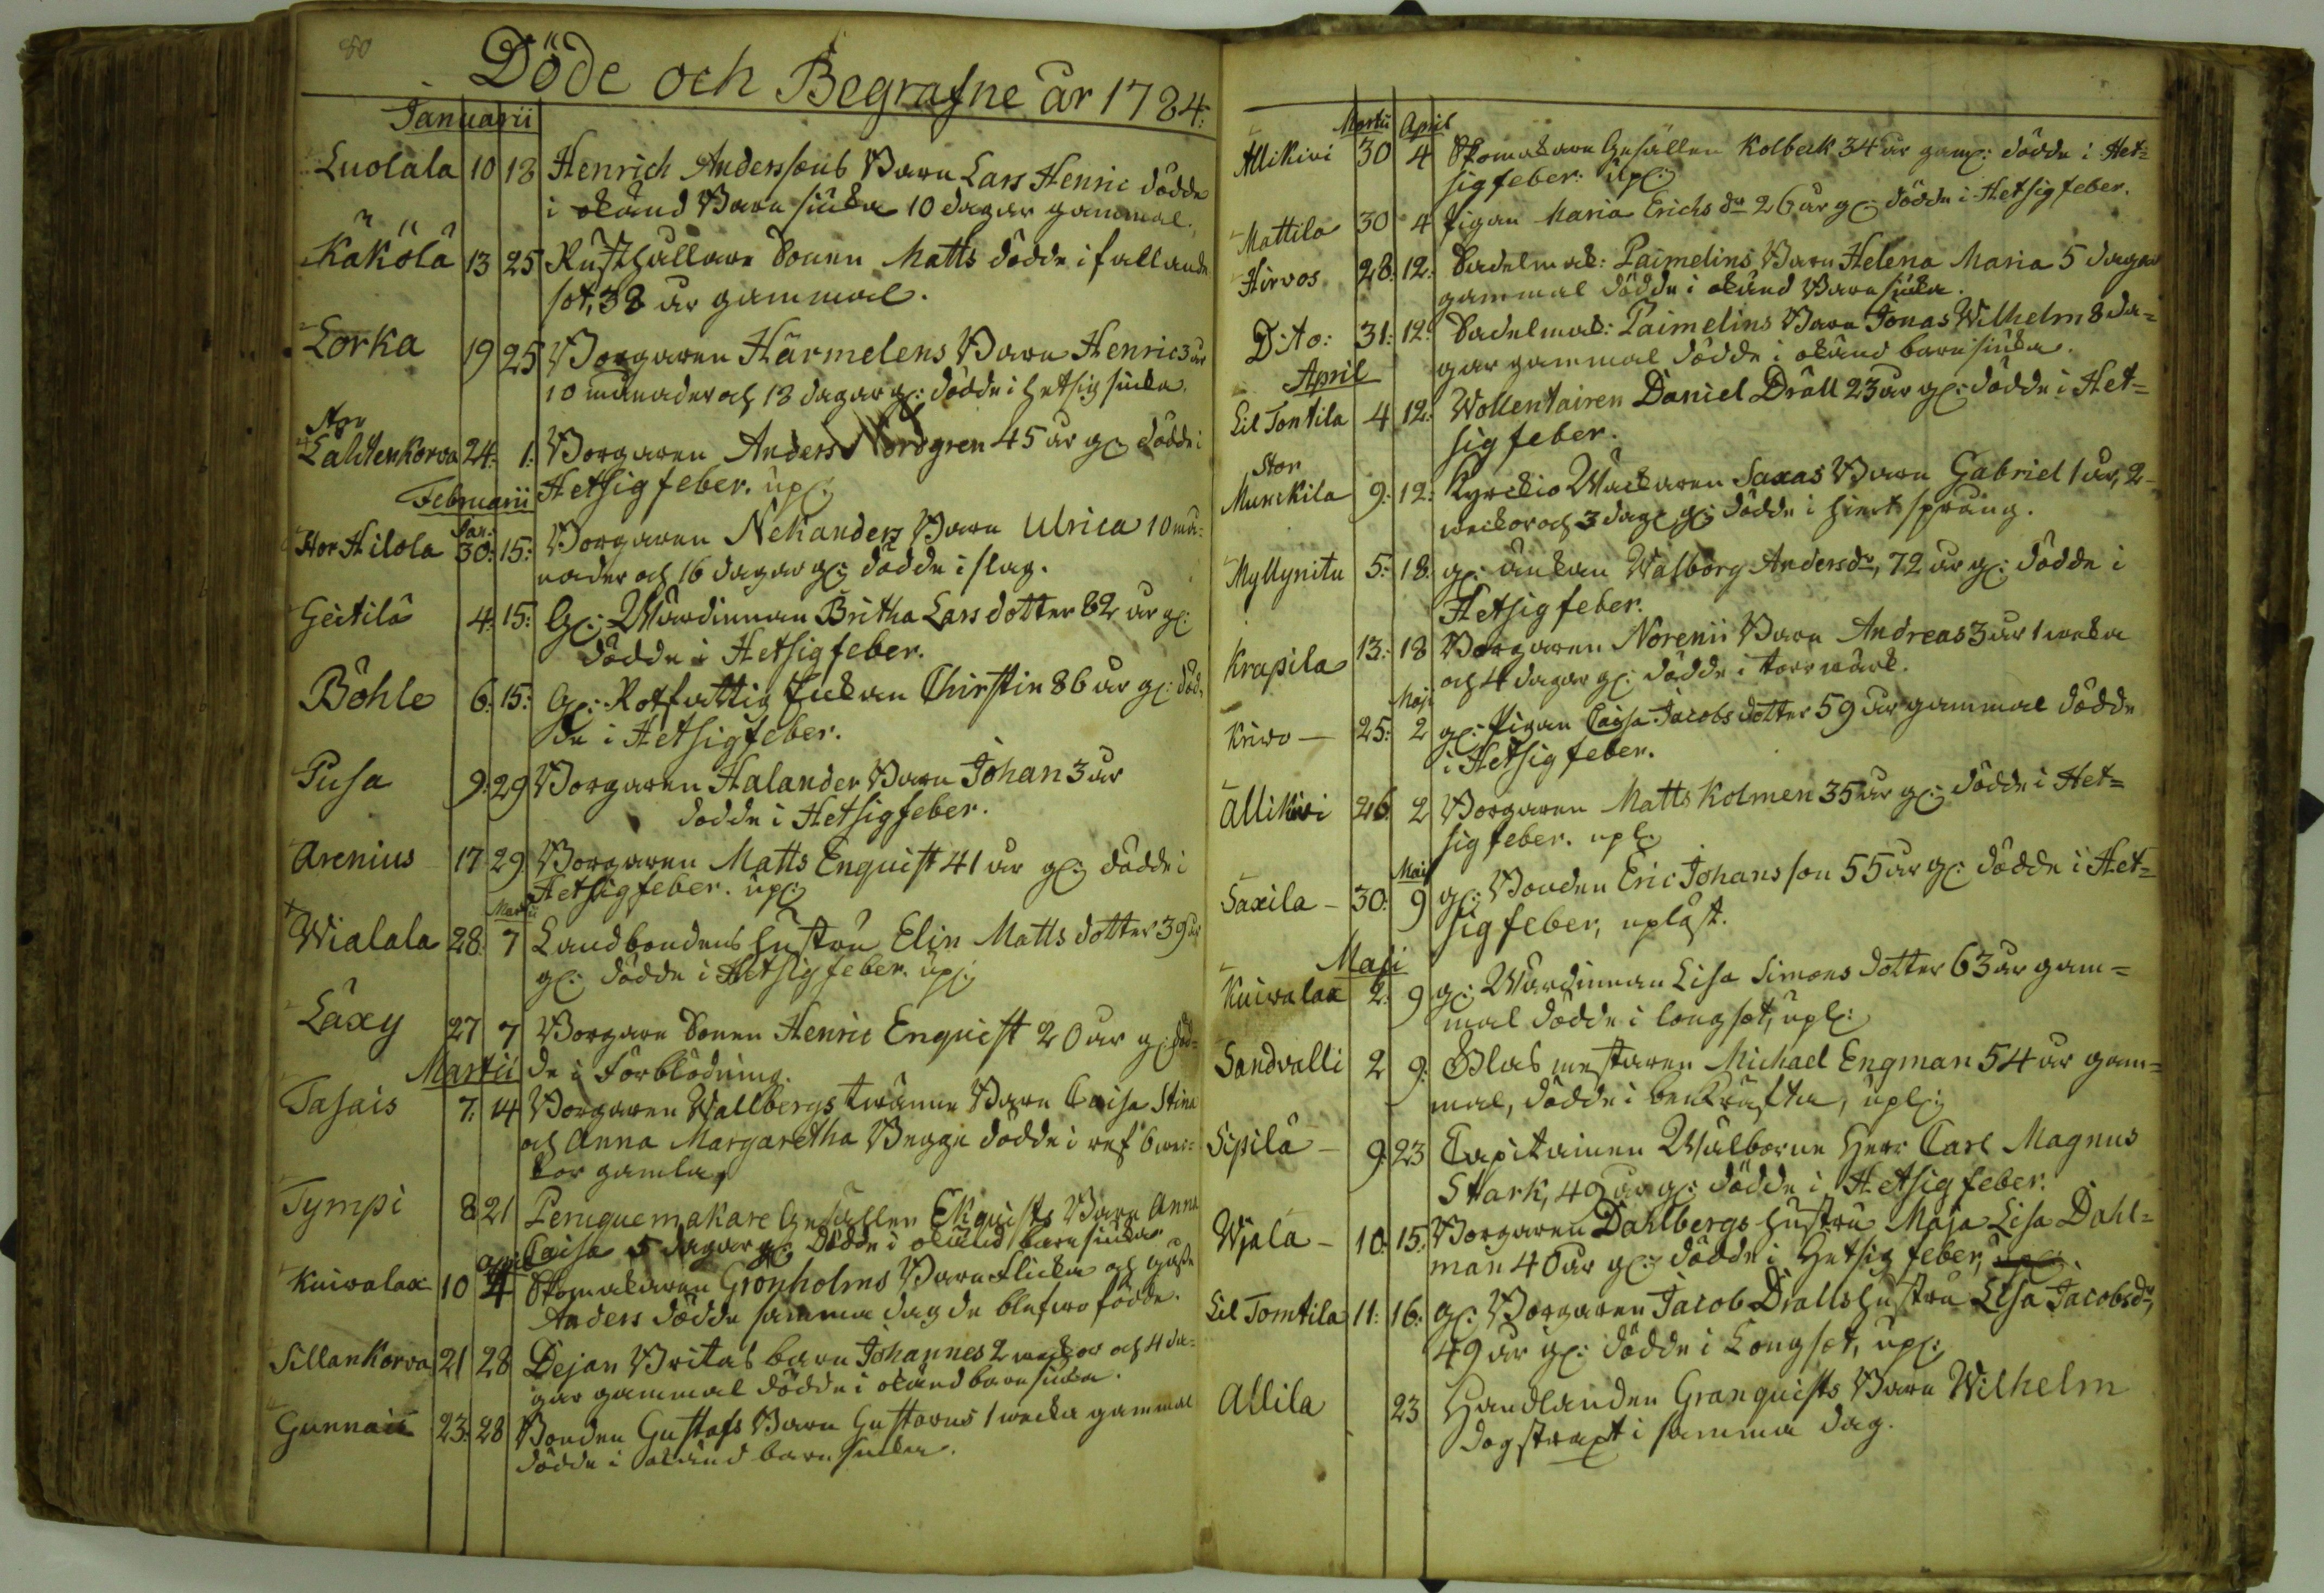 80
Döde och Begrafne år 1784:
Januarii
Luolala 10 18 Henrich Anderssons Barn Lars Henric dödde
i okänd Barn siuka 10 dagar gammal.
Käkölä 13 25 Rusthållare Sonen Matts dödde i fallande
sot, 38 år gammal.
Lorka 19 25 Borgaren Härmelens Barn Henric 3 år
10 månader och 13 dagar gl: dödde i hetsig siuka.
Stor
Lahtenkorva 24: 1: Borgaren Anders Nordgren 45 år gl: dödde i
Hetsig feber. upl:
Februarii
Jan:
Stor Hilola 30: 15: Borgaren Nekanders Barn Ulrica 10 må-
nader och 16 dagar gl: dödde i slag.
Geitilä 4: 15: Gl: Wärdinnan Britha Lars dotter 82 år gl:
dödde i Hetsig feber.
Böhle 6: 15: Gl: Rotfattig Enkan Chirstin 86 år gl: död-
de i Hetsig feber.
Pusa 9: 29 Borgaren Halander Barn Johan 3 år
dödde i Hetsig feber.
Arenius 17 29 Borgaren Matts Enquist 41 år gl: dödde i
Hetsig feber. upl:
Martii
Wialala 28: 7 Landbondens hustru Elin Matts dotter 39 år
gl: dödde i Hetsig feber. upl:
Läxy 27 7 Borgare Sonen Henric Enquist 20 år gl: död-
de i Förblödning.
Martii
Tasais 7: 14 Borgaren Wallbergs twänne Barn Caisa Stina
och Anna Margaretha Begge dödde i ref 6 wec-
kor gamla,
Tympi 8 21 Peruquemakare Gesällen Ekquists Barn Anna
Caisa 5 dagar gl: dödde i okänd barn siuka
April
Kuiwalax 10 4 Skomakaren Grönholms Barn flicka och gosse
Anders dödde samma dag de blefwo födde.
Sillankorva 21 28 Pejan Britas barn Johannes 2 weckor och 4 da-
gar gammal dödde i okänd barn siuka.
Gunnais 23: 28 Bonden Gustafs Barn Gustavus 1 wecka gammal
dödde i okänd barn siuka.
Martii April
Allikivi 30 4 Skomakare Gesällen Kolbeck 34 år gam: dödde i Het-
sig feber: upl:
Mattila 30 4 Pigan Maria Erichs dr 26 år gl: dödde i Hetsig feber.
Hirvos 28: 12: Sadelmak: Paimelins Barn Helena Maria 5 dagar
gammal dödde i okänd Barn siuka.
Dito: 31: 12: Sadelmak: Paimelins Barn Jonas Wilhelm 8 da-
gar gammal dödde i okänd barn siuka.
April
Lil Tontila 4 12: Wollentairen Daniel Dräll 23 år gl: dödde i Het-
sig feber.
Stor
Munckila 9: 12: Kyrckio Wäcktaren Saxas Barn Gabriel 1 år, 2
weckor och 3 dag: gl: dödde i hiert språng.
Myllynitu 5: 18: gl: änckan Walborg Andersdr, 72 år gl: dödde i
Hetsig feber.
Krapila 13: 18 Borgaren Norenii Barn Andreas 3 år 1 wecka
och 4 dagar gl: dödde i torrwärck.
Maji
Kriwo — 25: 2 gl: Pigan Caisa Jacobs dotter 59 år gammal dödde
i Hetsig feber.
Allikivi 26 2 Borgaren Matts Kolmen 35 år gl: dödde i Het-
sig feber. upl:
Maji
Saxila — 30: 9 gl: Bonden Eric Johansson 55 år gl: dödde i Het-
sig feber, uplåst.
Maji
Kuiwalax 2: 9 gl: Wärdinnan Lisa Simons dotter 63 år gam-
mal dödde i longsot, upl:
Sandvalli 2 9: Glas mestaren Michael Engman 54 år gam-
mal, dödde i benkräfta, upl:
Sipilä — 9: 23 Capitainen Wälborne Herr Carl Magnus
Stark, 49 år gl: dödde i Hetsig feber.
Wjala — 10: 15: Borgaren Dahlbergs hustru Maja Lisa Dahl-
man 40 år gl: dödde i Hetsig feber, upl:
Lil Tomtila 11: 16: gl: Borgaren Jacob Drälls hustru Lisa Jacobsdr,
49 år gl: dödde i Longsot, upl:
Allila 23 Handlanden Granquists Barn Wilhelm
dog straxt i samma dag.